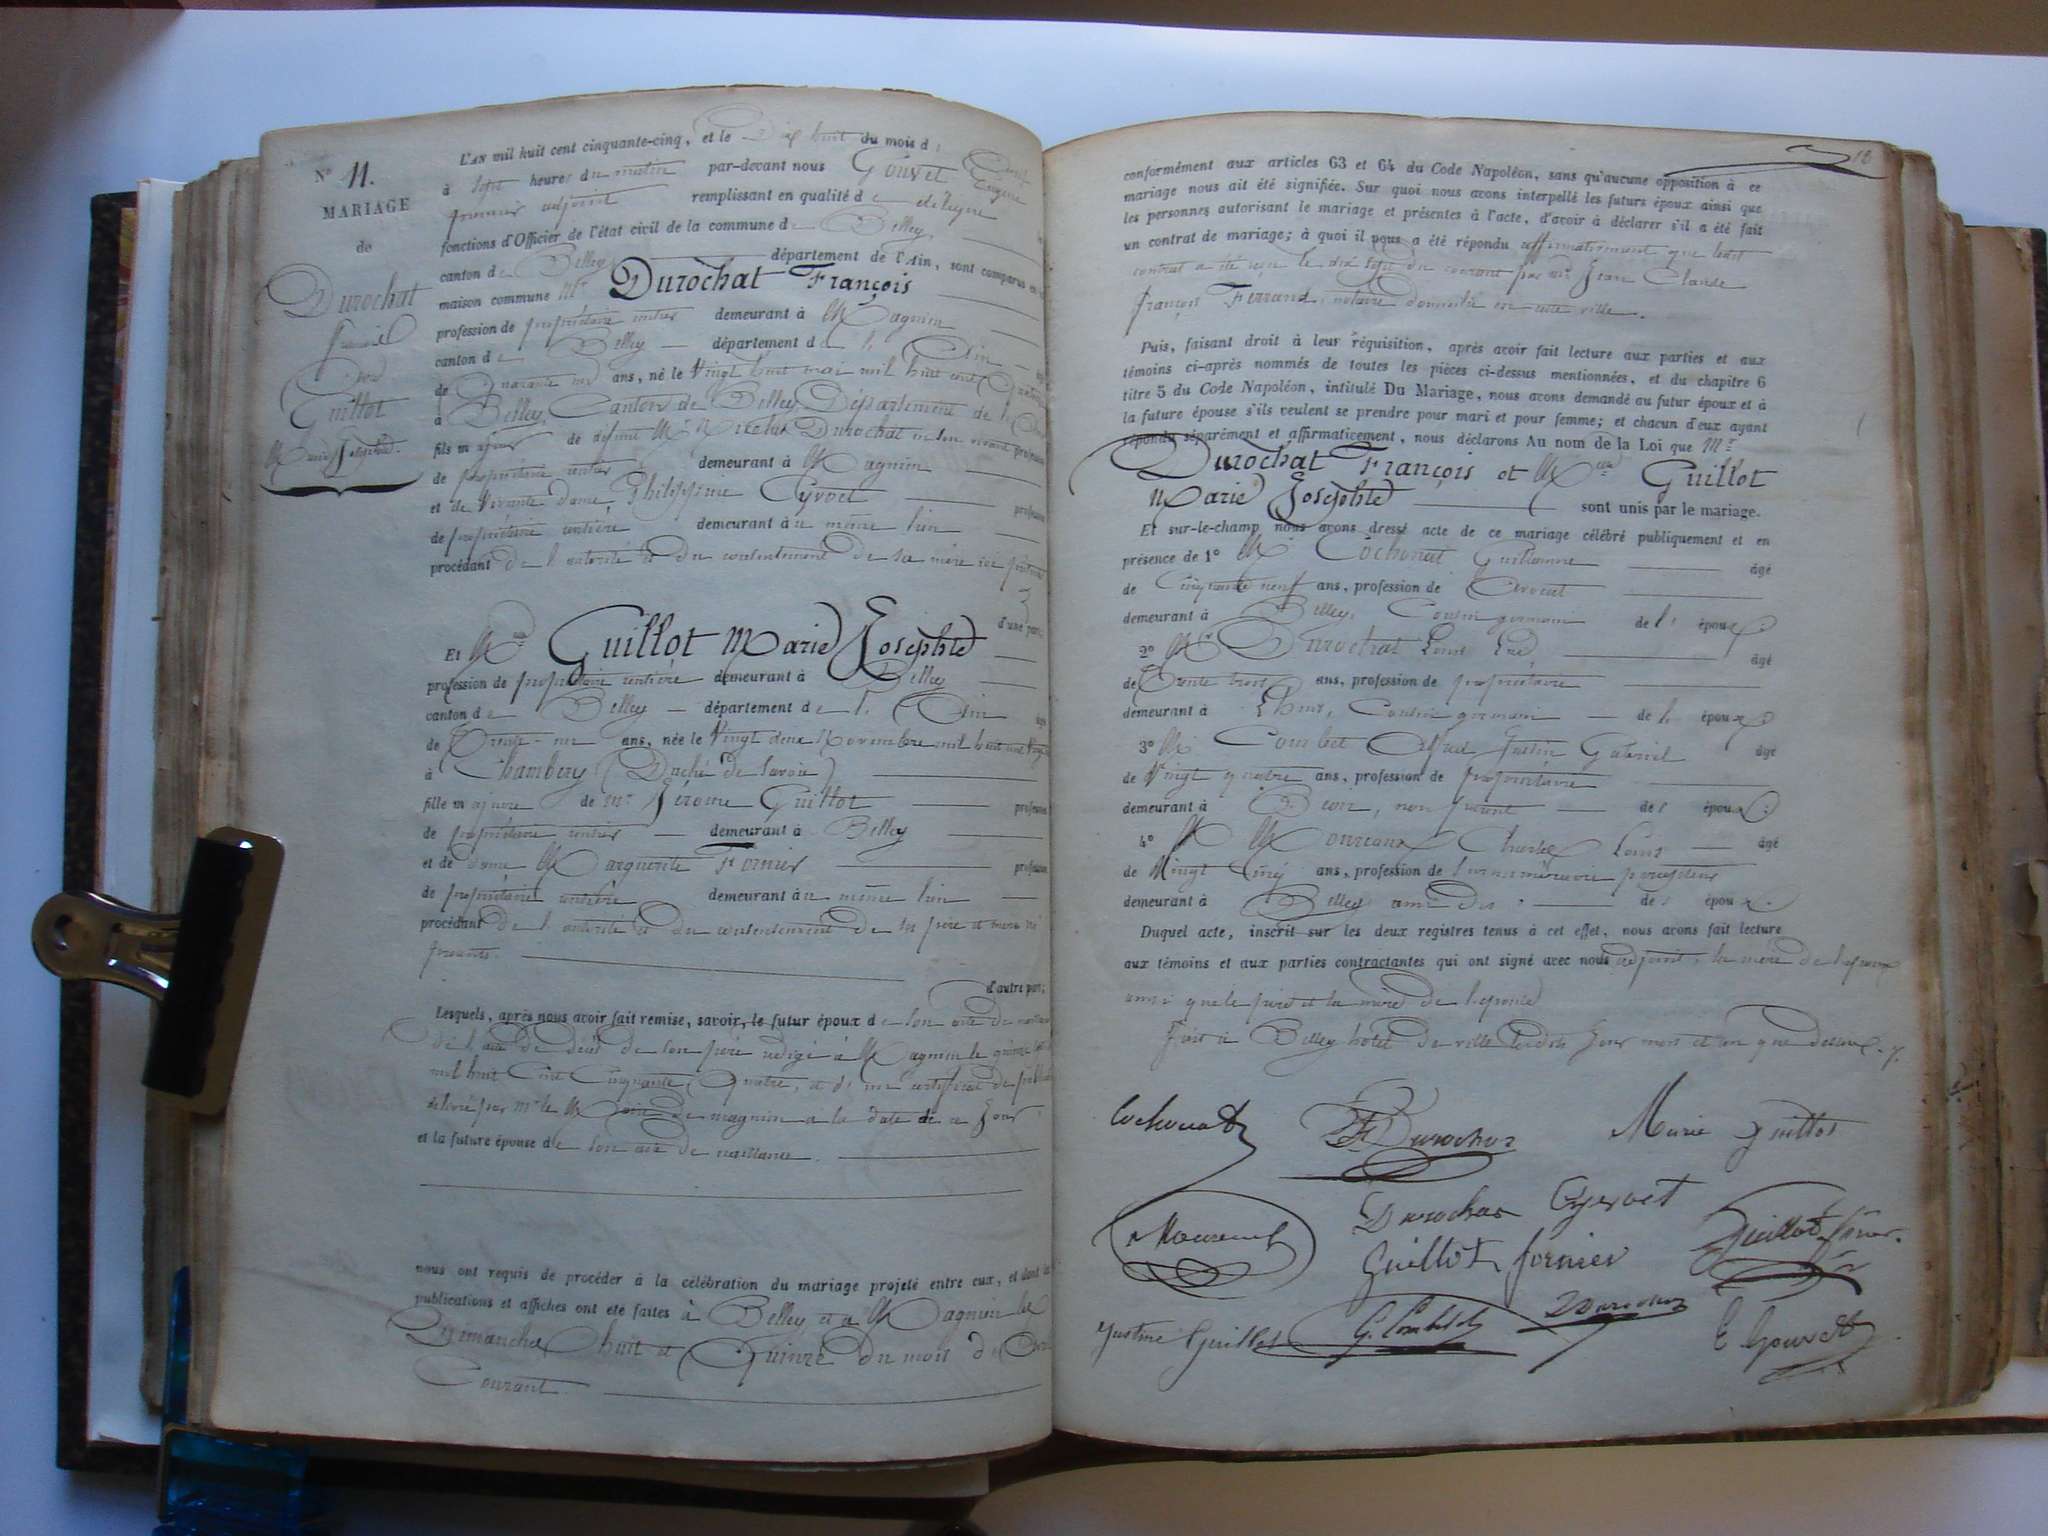 L'AN mil huit cent cinquante-cinq, et le Dix huit du mois d'
à sept heures du matin par-devant nous Gouvet Eugène
premier adjoint remplissant en qualité de délégué
fonctions d'Officier de l'état civil de la commune de Belley
canton de Belley département de l'Ain, sont comparus en
maison commune Mr Durochat François
profession de propriétaire rentier demeurant à Magnin
canton de Belley département de l'Ain
de Quarante un ans, né le Vingt huit mai mil huit cent
à Belley, Canton de Belley, Département de l'
fils majeur de défunt Mr Durochat en son vivant profession
de propriétaire rentier demeurant à Magnin
et de Vivante dame Philippine Cyvoct profession
de propriétaire rentière demeurant au même lieu
procédant de l'autorité et du consentement de sa mère ici présente
d'une part;
Et Mlle Guillot Marie Josephte
profession de propriétaire rentière demeurant à Belley
canton de Belley département de l'Ain
de Trente-un ans, née le Vingt deux Novembre mil huit cent vingt
à Chambéry (Duché de Savoie)
fille majeure de Mr Jérome Guillot profession
de propriétaire rentier demeurant à Belley
et de dame Marguerite Fornier profession
de propriétaire rentière demeurant au même lieu
procédant de l'autorité et du consentement de ses père et mère ici
présents.
d'autre part;
Lesquels, après nous avoir fait remise, savoir, le futur époux de son acte de naissance
de l'acte de décès de son père rédigé à Magnin le quinze
mil huit Cent Cinquante Quatre, et d'un certificat de
délivré par Mr le Maire de Magnin à la date de ce jour
et la future épouse de son acte de naissance.
nous ont requis de procéder à la célébration du mariage projeté entre eux, et dont les
publications et affiches ont été faites à Belley et à Magnin les
Dimanches huit et Quinze du mois d'
Courant.
No 11.
MARIAGE
de
Durochat
François
Avec
Guillot
Marie Josephte.
18
conformément aux articles 63 et 64 du Code Napoléon, sans qu'aucune opposition à ce
mariage nous ait été signifiée. Sur quoi nous avons interpellé les futurs époux ainsi que
les personnes autorisant le mariage et présentes à l'acte, d'avoir à déclarer s'il a été fait
un contrat de mariage; à quoi il nous a été répondu affirmativement que ledit
contrat a été reçu le dix sept du courant par Me Jean Claude
François Ferrand, notaire domicilié en cette ville.
Puis, faisant droit à leur réquisition, après avoir fait lecture aux parties et aux
témoins ci-après nommés de toutes les pièces ci-dessus mentionnées, et du chapitre 6
titre 5 du Code Napoléon, intitulé Du Mariage, nous avons demandé au futur époux et à
la future épouse s'ils veulent se prendre pour mari et pour femme; et chacun d'eux ayant
répondu séparément et affirmativement, nous déclarons Au nom de la Loi que Mr
Durochat François et Mlle Guillot
Marie Josephte sont unis par le mariage.
Et sur-le-champ nous avons dressé acte de ce mariage célébré publiquement et en
présence de 1° M Cochonat Guillaume âgé
de Cinquante neuf ans, profession de Avocat
demeurant à Belley, Cousin germain de l' époux.
2° Mr Durochat Louis âgé
de Trente trois ans, profession de propriétaire
demeurant à Lhuis, Cousin germain de l' époux.
3° M Combet Gabriel âgé
de Vingt quatre ans, profession de propriétaire
demeurant à Béon, non parent des époux.
4° Mr Charles Louis âgé
de Vingt Cinq ans, profession de Surnuméraire percepteur
demeurant à Belley ami des époux.
Duquel acte, inscrit sur les deux registres tenus à cet effet, nous avons fait lecture
aux témoins et aux parties contractantes qui ont signé avec nous adjoint, la mère de l'époux
ainsi que le père et la mère de l'épouse
Fait à Belley hotel de ville lesdits jour mois et an que dessus.
Cochonat Durochat Marie Guillot
Durochat Cyvoct
Guillot fornier
Justine Guillot G. Combet Durochat E Gouvet